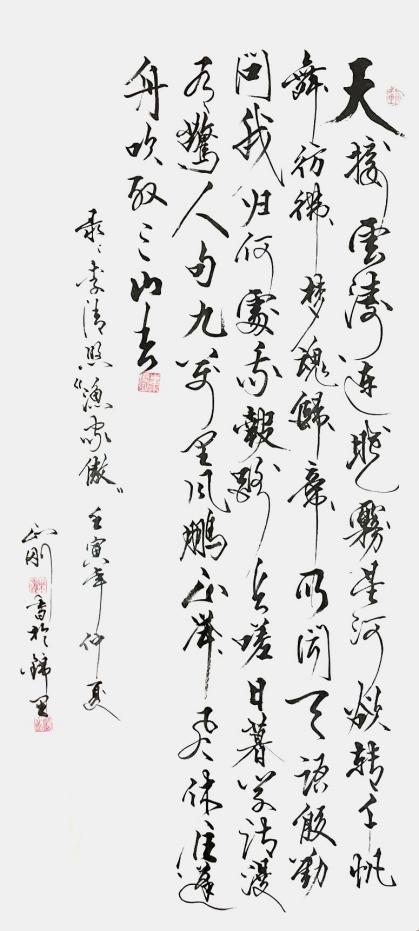 天接雲濤連曉霧星河欲轉千帆
舞彷彿梦魂歸帝所闻天語殷勤
問我归何處我報路长嗟日暮学诗漫
有驚人句九万里风鹏正舉风休住蓬
舟吹取三山去
录李清照“渔家傲”壬寅年仲夏
正刚書於锦里